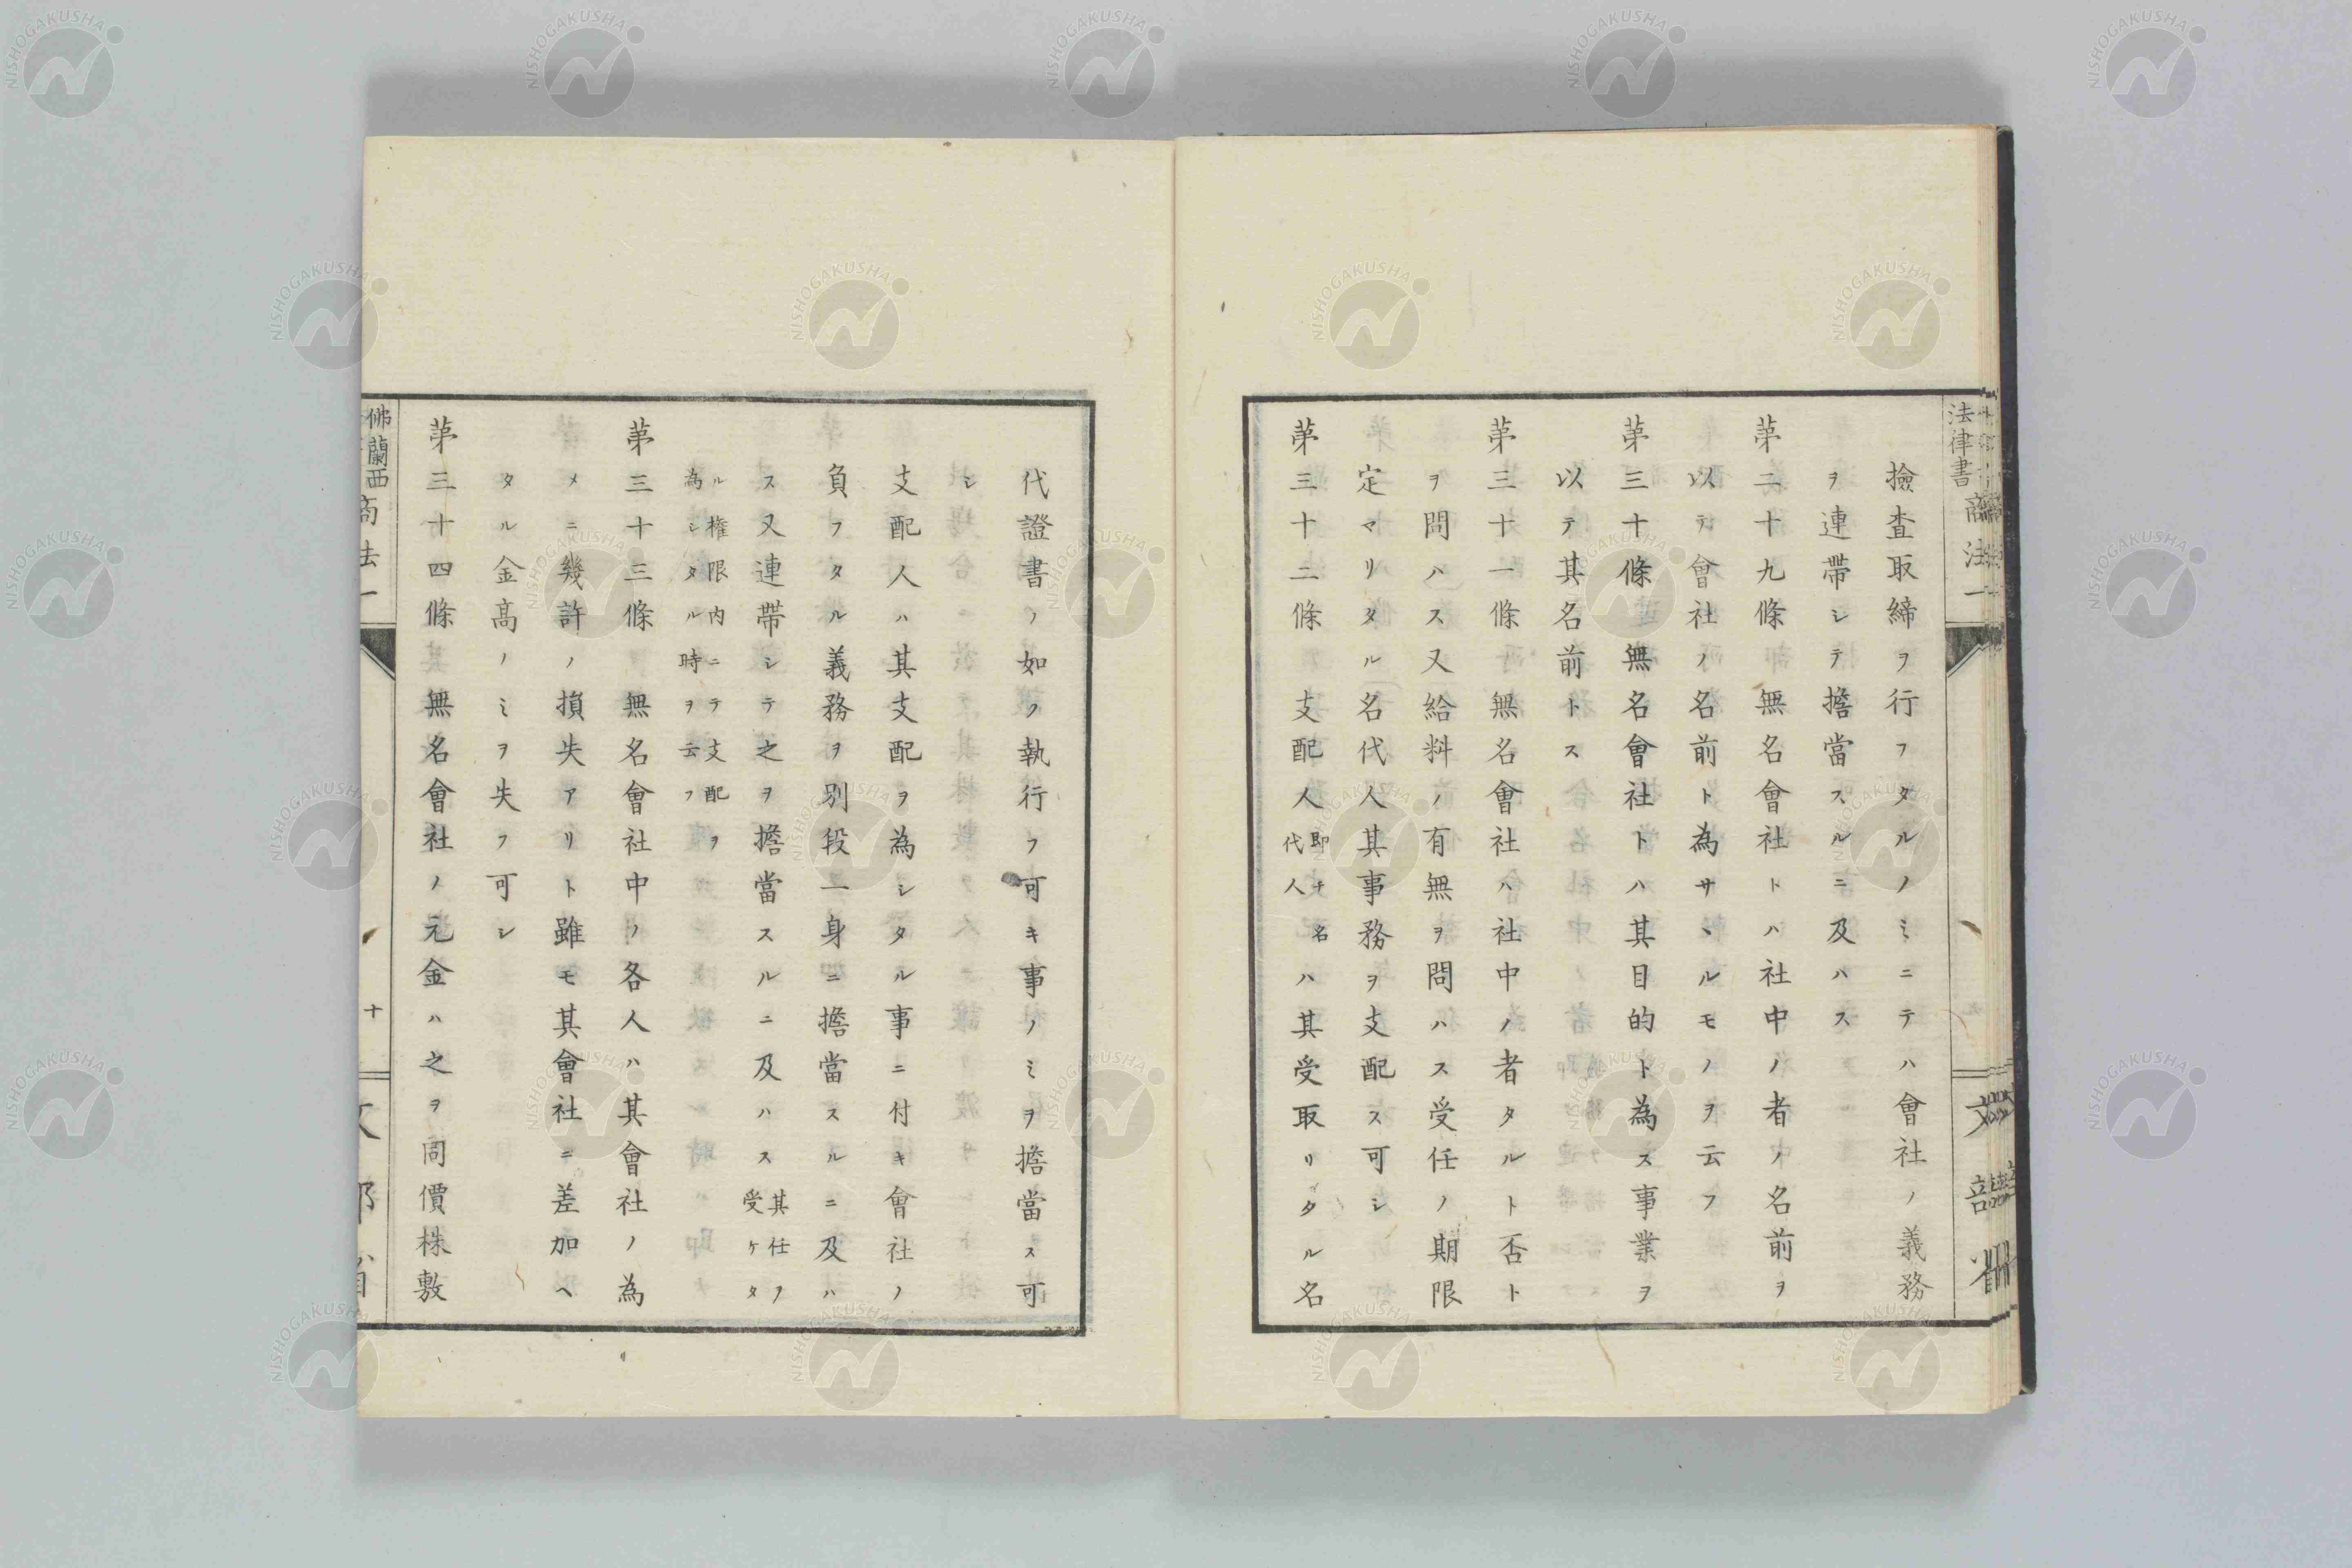 法律書 商法一
撿査取締ヲ行フタルノミニテハ會社ノ義務
ヲ連帶シテ擔當スルニ及ハス
苐二十九條 無名會社トハ社中ノ者ノ名前ヲ
以テ會社ノ名前ト為サヽルモノヲ云フ
苐三十條 無名會社トハ其目的ト為ス事業ヲ
以テ其名前トス
苐三十一條 無名會社ハ社中ノ者タルト否ト
ヲ問ハス又給料ノ有無ヲ問ハス受任ノ期限
定マリタル名代人其事務ヲ支配ス可シ
苐三十二條 支配人即チ名代人ハ其受取リタル名
代證書ノ如ク執行フ可キ事ノミヲ擔當ス可
シ
支配人ハ其支配ヲ為シタル事ニ付キ會社ノ
負フタル義務ヲ別段一身ニ擔當スルニ及ハ
ス又連帶シテ之ヲ擔當スルニ及ハス其任ヲ受ケタ
ル權限内ニテ支配ヲ為シタル時ヲ云フ
苐三十三條 無名會社中ノ各人ハ其會社ノ為
メニ幾許ノ損失アリト雖モ其會社ニ差加ヘ
タル金高ノミヲ失フ可シ
苐三十四條 無名會社ノ元金ハ之ヲ同價株敷
佛蘭西 商法一
十
文部省
NISHOGAKUSHA